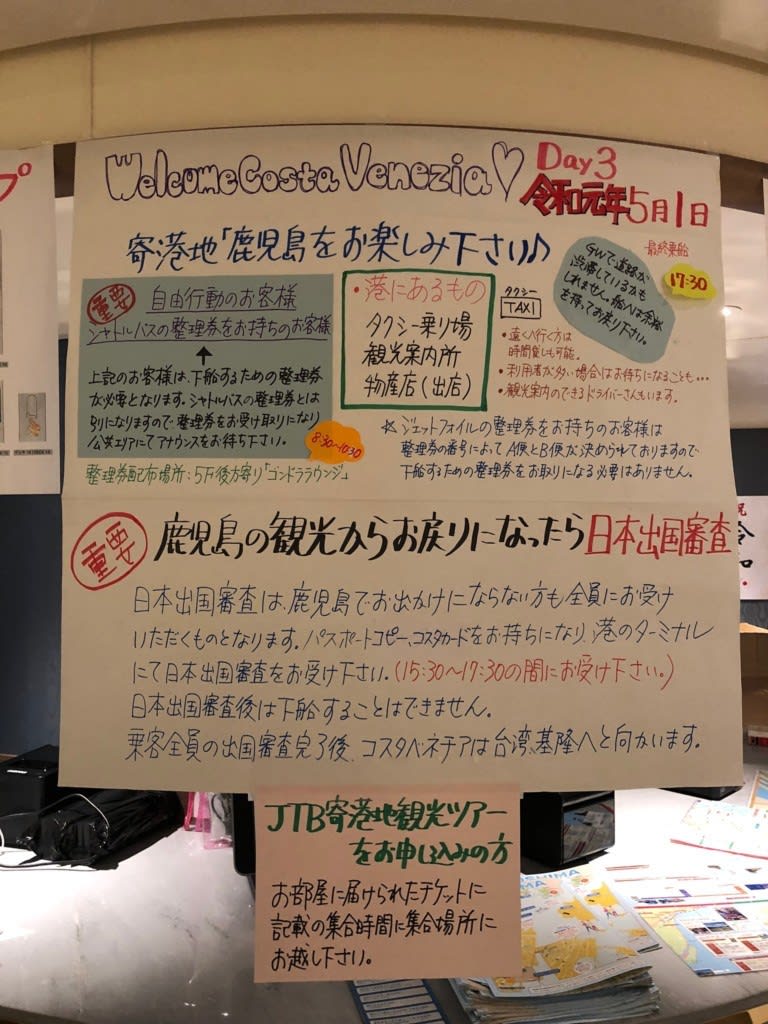 Welcome Costa Venezia♡ Day 3
令和元年5月1日
寄港地「鹿児島をお楽しみ下さい♪
重要 自由行動のお客様
シャトルバスの整理券をお持ちのお客様
↑
上記のお客様は、下船するための整理券
が必要となります。シャトルバスの整理券とは
別になりますので整理券をお受け取りになり
公共エリアにてアナウンスをお待ち下さい。
8:30〜10:30
整理券配布場所:5F後方寄り「ゴンドララウンジ」
・港にあるもの
タクシー乗り場
観光案内所
物産店(出店)
GWで道路が
渋滞しているかも
しれません。船へは余裕
を持ってお戻り下さい。
最終乗船
17:30
タクシー
TAXI
・遠くへ行く方は
時間貸しも可能。
・利用者が多い場合はお待ちになることも…
・観光案内のできるドライバーさんもいます。
☆ジェットフォイルの整理券をお持ちのお客様は
整理券の番号によってA便とB便が決められておりますので
下船するための整理券をお取りになる必要はありません。
重要 鹿児島の観光からお戻りになったら日本出国審査
日本出国審査は、鹿児島でお出かけにならない方も全員にお受け
いただくものとなります。パスポートコピー、コスタカードをお持ちになり、港のターミナル
にて日本出国審査をお受け下さい。(15:30〜17:30の間にお受け下さい。)
日本出国審査後は下船することはできません。
乗客全員の出国審査完了後、コスタベネチアは台湾、基隆へと向かいます。
JTB寄港地観光ツアー
をお申し込みの方
お部屋に届けられたチケットに
記載の集合時間に集合場所に
お越し下さい。